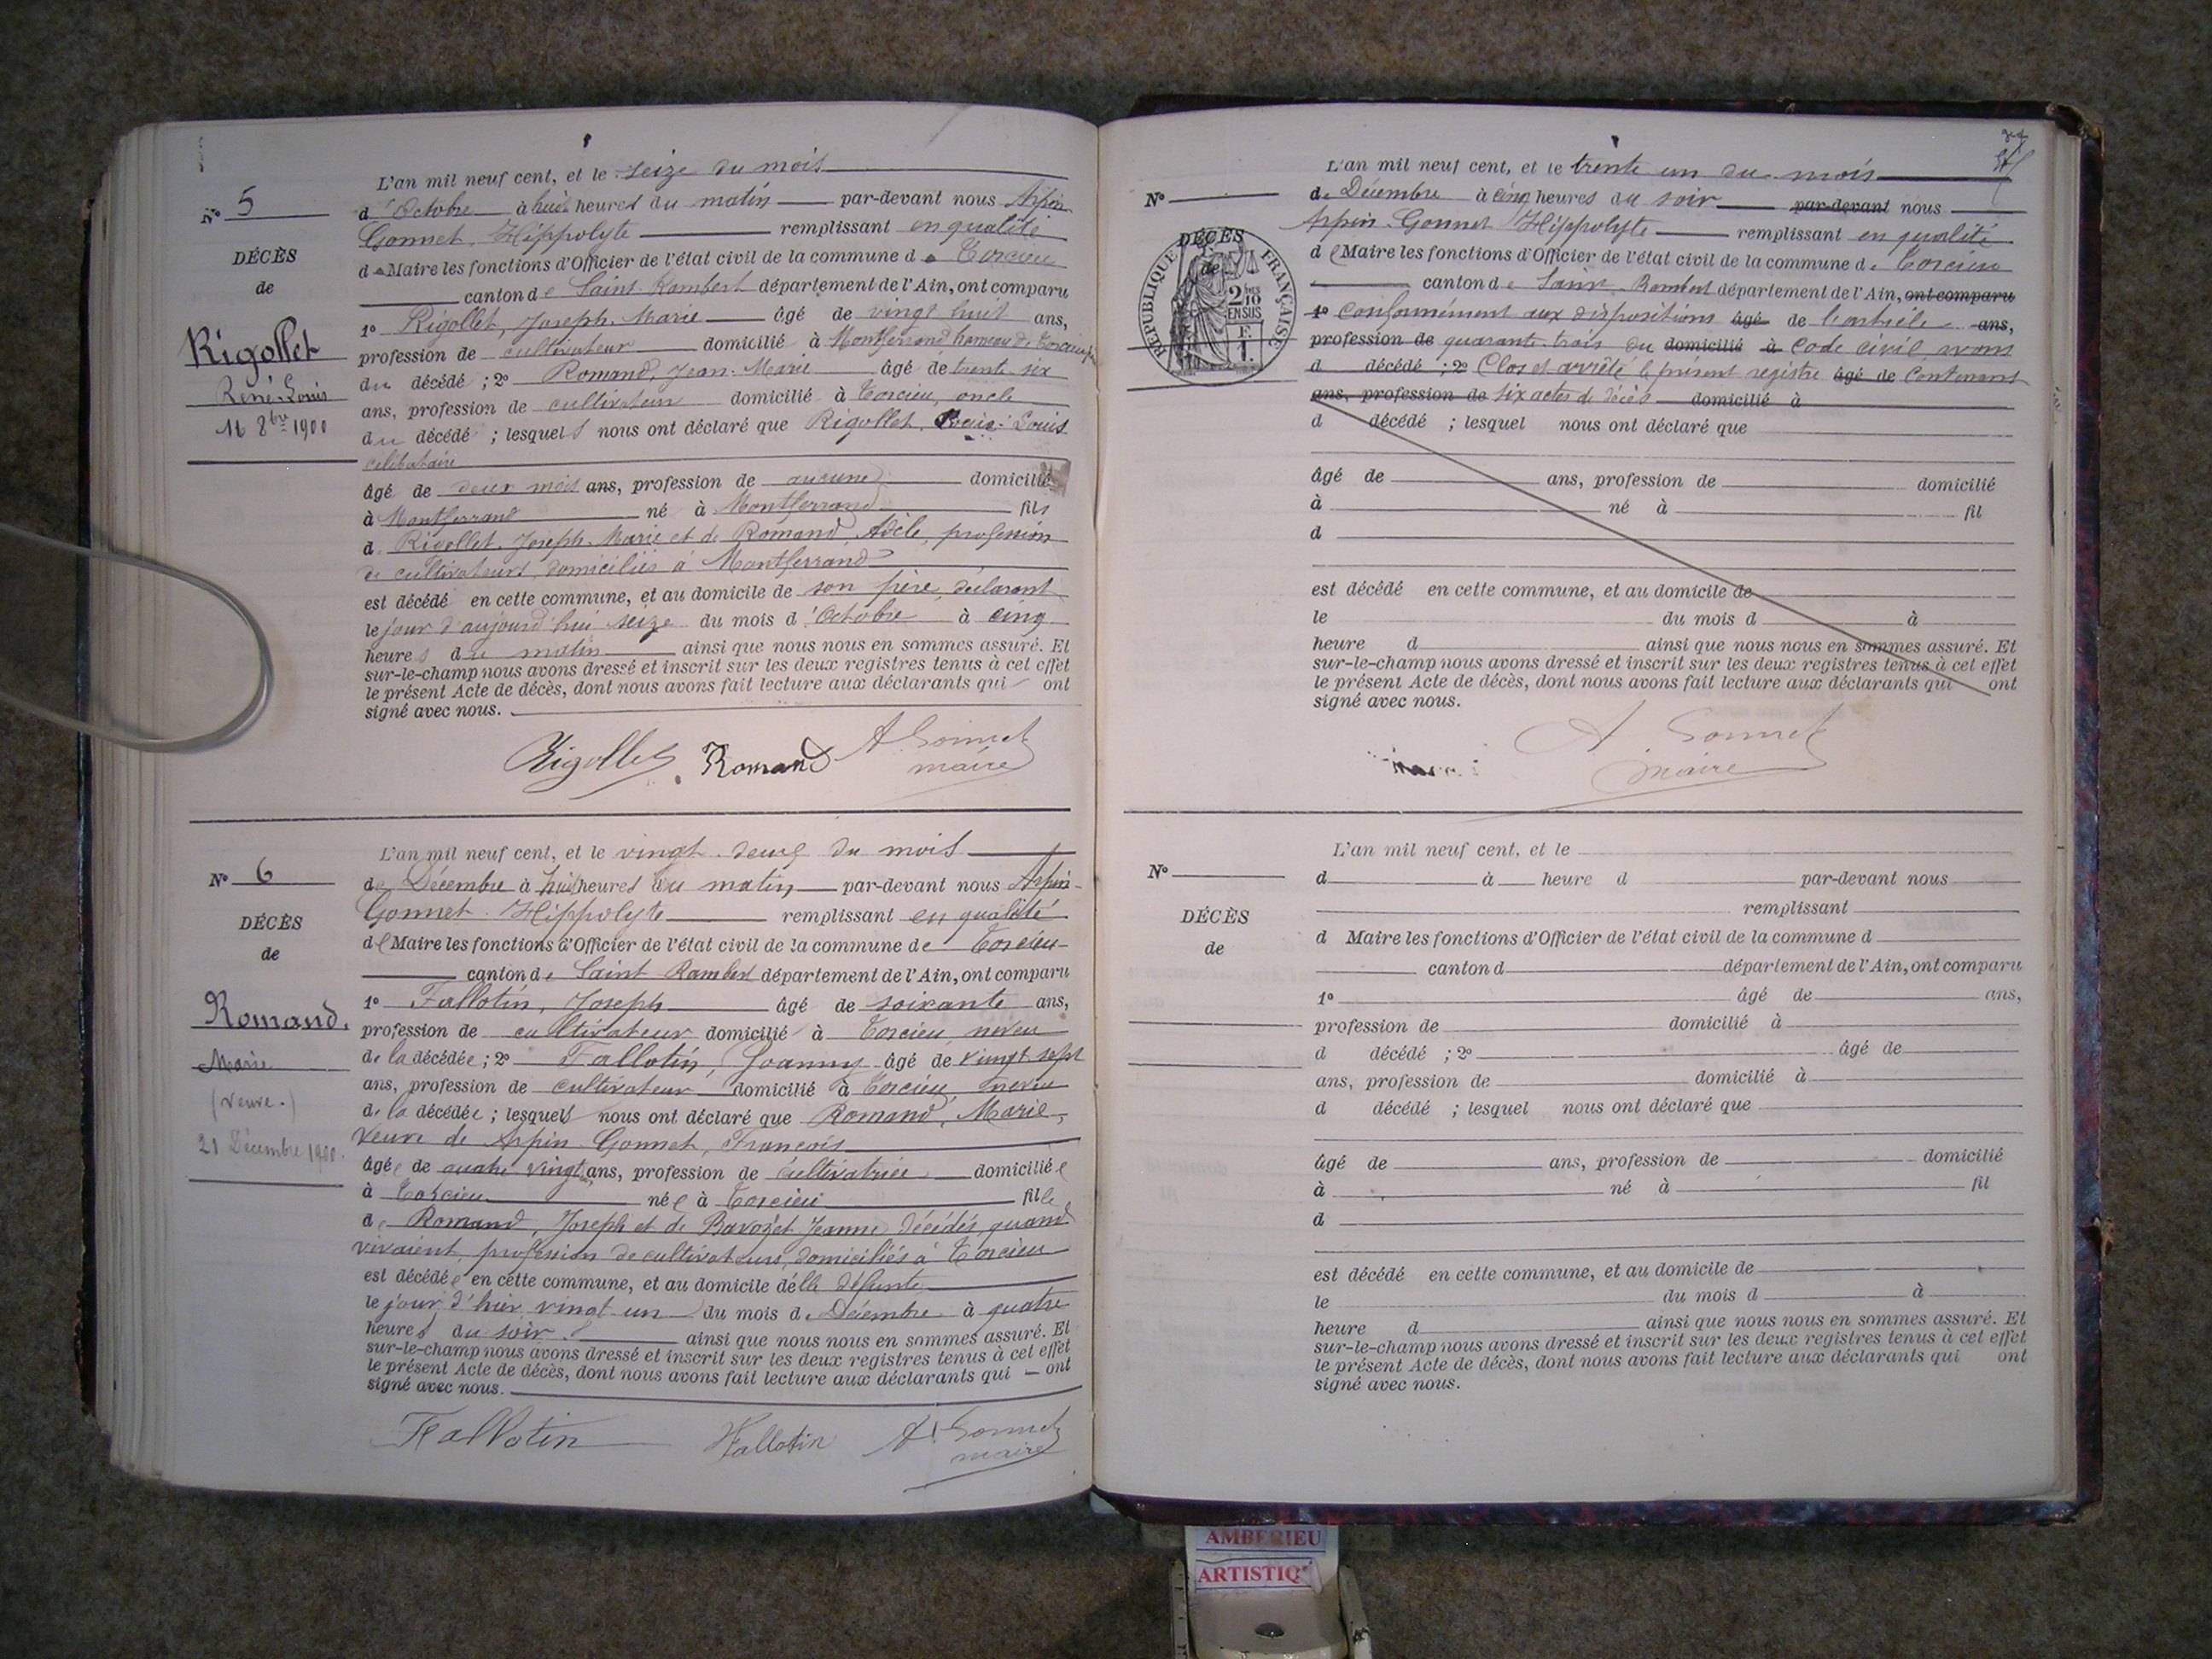 N° 5
DÉCÈS
de
Rigollet
René-Louis
16 8bre 1900
L'an mil neuf cent, et le seize du mois
d'Octobre à huit heures du matin par-devant nous Arpin
Gonnet, Hippolyte remplissant en qualité
de Maire les fonctions d'Officier de l'état civil de la commune de Torcieu
canton de Saint Rambert département de l'Ain, ont comparu
1° Rigollet, Joseph-Marie âgé de vingt huit ans,
profession de cultivateur domicilié à Montferrand hameau de Torcieu
du décédé ; 2° Romand, Jean-Marie âgé de trente-six
ans, profession de cultivateur domicilié à Torcieu, oncle
du décédé ; lesquels nous ont déclaré que Rigollet, Louis
célibataire
âgé de deux mois ans, profession de aucune domicilié
à Montferrand né à Montferrand fils
de Rigollet, Joseph-Marie et de Romand, Adèle, profession
de cultivateurs, domiciliés à Montferrand
est décédé en cette commune, et au domicile de son père, déclarant
le jour d'aujourd'hui seize du mois d'Octobre à cinq
heures du matin ainsi que nous nous en sommes assuré. Et
sur-le-champ nous avons dressé et inscrit sur les deux registres tenus à cet effet
le présent Acte de décès, dont nous avons fait lecture aux déclarants qui ont
signé avec nous.
Rigollet Romand A. Gonnet
maire
N° 6
DÉCÈS
de
Romand.
Marie
(veuve.)
21 Décembre 1900.
L'an mil neuf cent, et le vingt-deux du mois
de Décembre à huit heures du matin par-devant nous Arpin-
Gonnet Hippolyte remplissant en qualité
de Maire les fonctions d'Officier de l'état civil de la commune de Torcieu
canton de Saint Rambert département de l'Ain, ont comparu
1° Fallotin, Joseph âgé de soixante ans,
profession de cultivateur domicilié à Torcieu, neveu
de la décédée ; 2° Fallotin, Joanny âgé de vingt sept
ans, profession de cultivateur domicilié à Torcieu, neveu
de la décédée ; lesquels nous ont déclaré que Romand, Marie,
veuve de Arpin Gonnet, François
âgée de quatre vingt ans, profession de cultivatrice domiciliée
à Torcieu née à Torcieu fille
de Romand, Joseph et de Bavozet Jeanne décédés, quand
vivaient, profession de cultivateurs, domiciliés à Torcieu
est décédée en cette commune, et au domicile de la défunte
le jour d'hier vingt un du mois de Décembre à quatre
heures du soir ainsi que nous nous en sommes assuré. Et
sur-le-champ nous avons dressé et inscrit sur les deux registres tenus à cet effet
le présent Acte de décès, dont nous avons fait lecture aux déclarants qui ont
signé avec nous.
Fallotin Fallotin A. Gonnet
maire
N°
DÉCÈS
de
RÉPUBLIQUE FRANÇAISE
2/10 EN SUS
L'an mil neuf cent, et le trente un du mois
de Décembre à cinq heures du soir par-devant nous
Arpin-Gonnet Hippolyte remplissant en qualité
de Maire les fonctions d'Officier de l'état civil de la commune de Torcieu
canton de Saint-Rambert département de l'Ain, ont comparu
1° Conformément aux dispositions âgé de l'article ans,
profession de quarante-trois du domicilié à Code civil, avons
d décédé ; 2° Clos et arrêté le présent registre âgé de Contenant
ans, profession de six actes de décès domicilié à
d décédé ; lesquel nous ont déclaré que
âgé de ans, profession de domicilié
à né à fil
d
est décédé en cette commune, et au domicile de
le du mois d à
heure d ainsi que nous nous en sommes assuré. Et
sur-le-champ nous avons dressé et inscrit sur les deux registres tenus à cet effet
le présent Acte de décès, dont nous avons fait lecture aux déclarants qui ont
signé avec nous.
A. Gonnet
maire
N°
DÉCÈS
de
L'an mil neuf cent, et le
d à heure d par-devant nous
remplissant
d Maire les fonctions d'Officier de l'état civil de la commune d
canton d département de l'Ain, ont comparu
1° âgé de ans,
profession de domicilié à
d décédé ; 2° âgé de
ans, profession de domicilié à
d décédé ; lesquel nous ont déclaré que
âgé de ans, profession de domicilié
à né à fil
d
est décédé en cette commune, et au domicile de
le du mois d à
heure d ainsi que nous nous en sommes assuré. Et
sur-le-champ nous avons dressé et inscrit sur les deux registres tenus à cet effet
le présent Acte de décès, dont nous avons fait lecture aux déclarants qui ont
signé avec nous.
AMBERIEU
ARTISTIQ